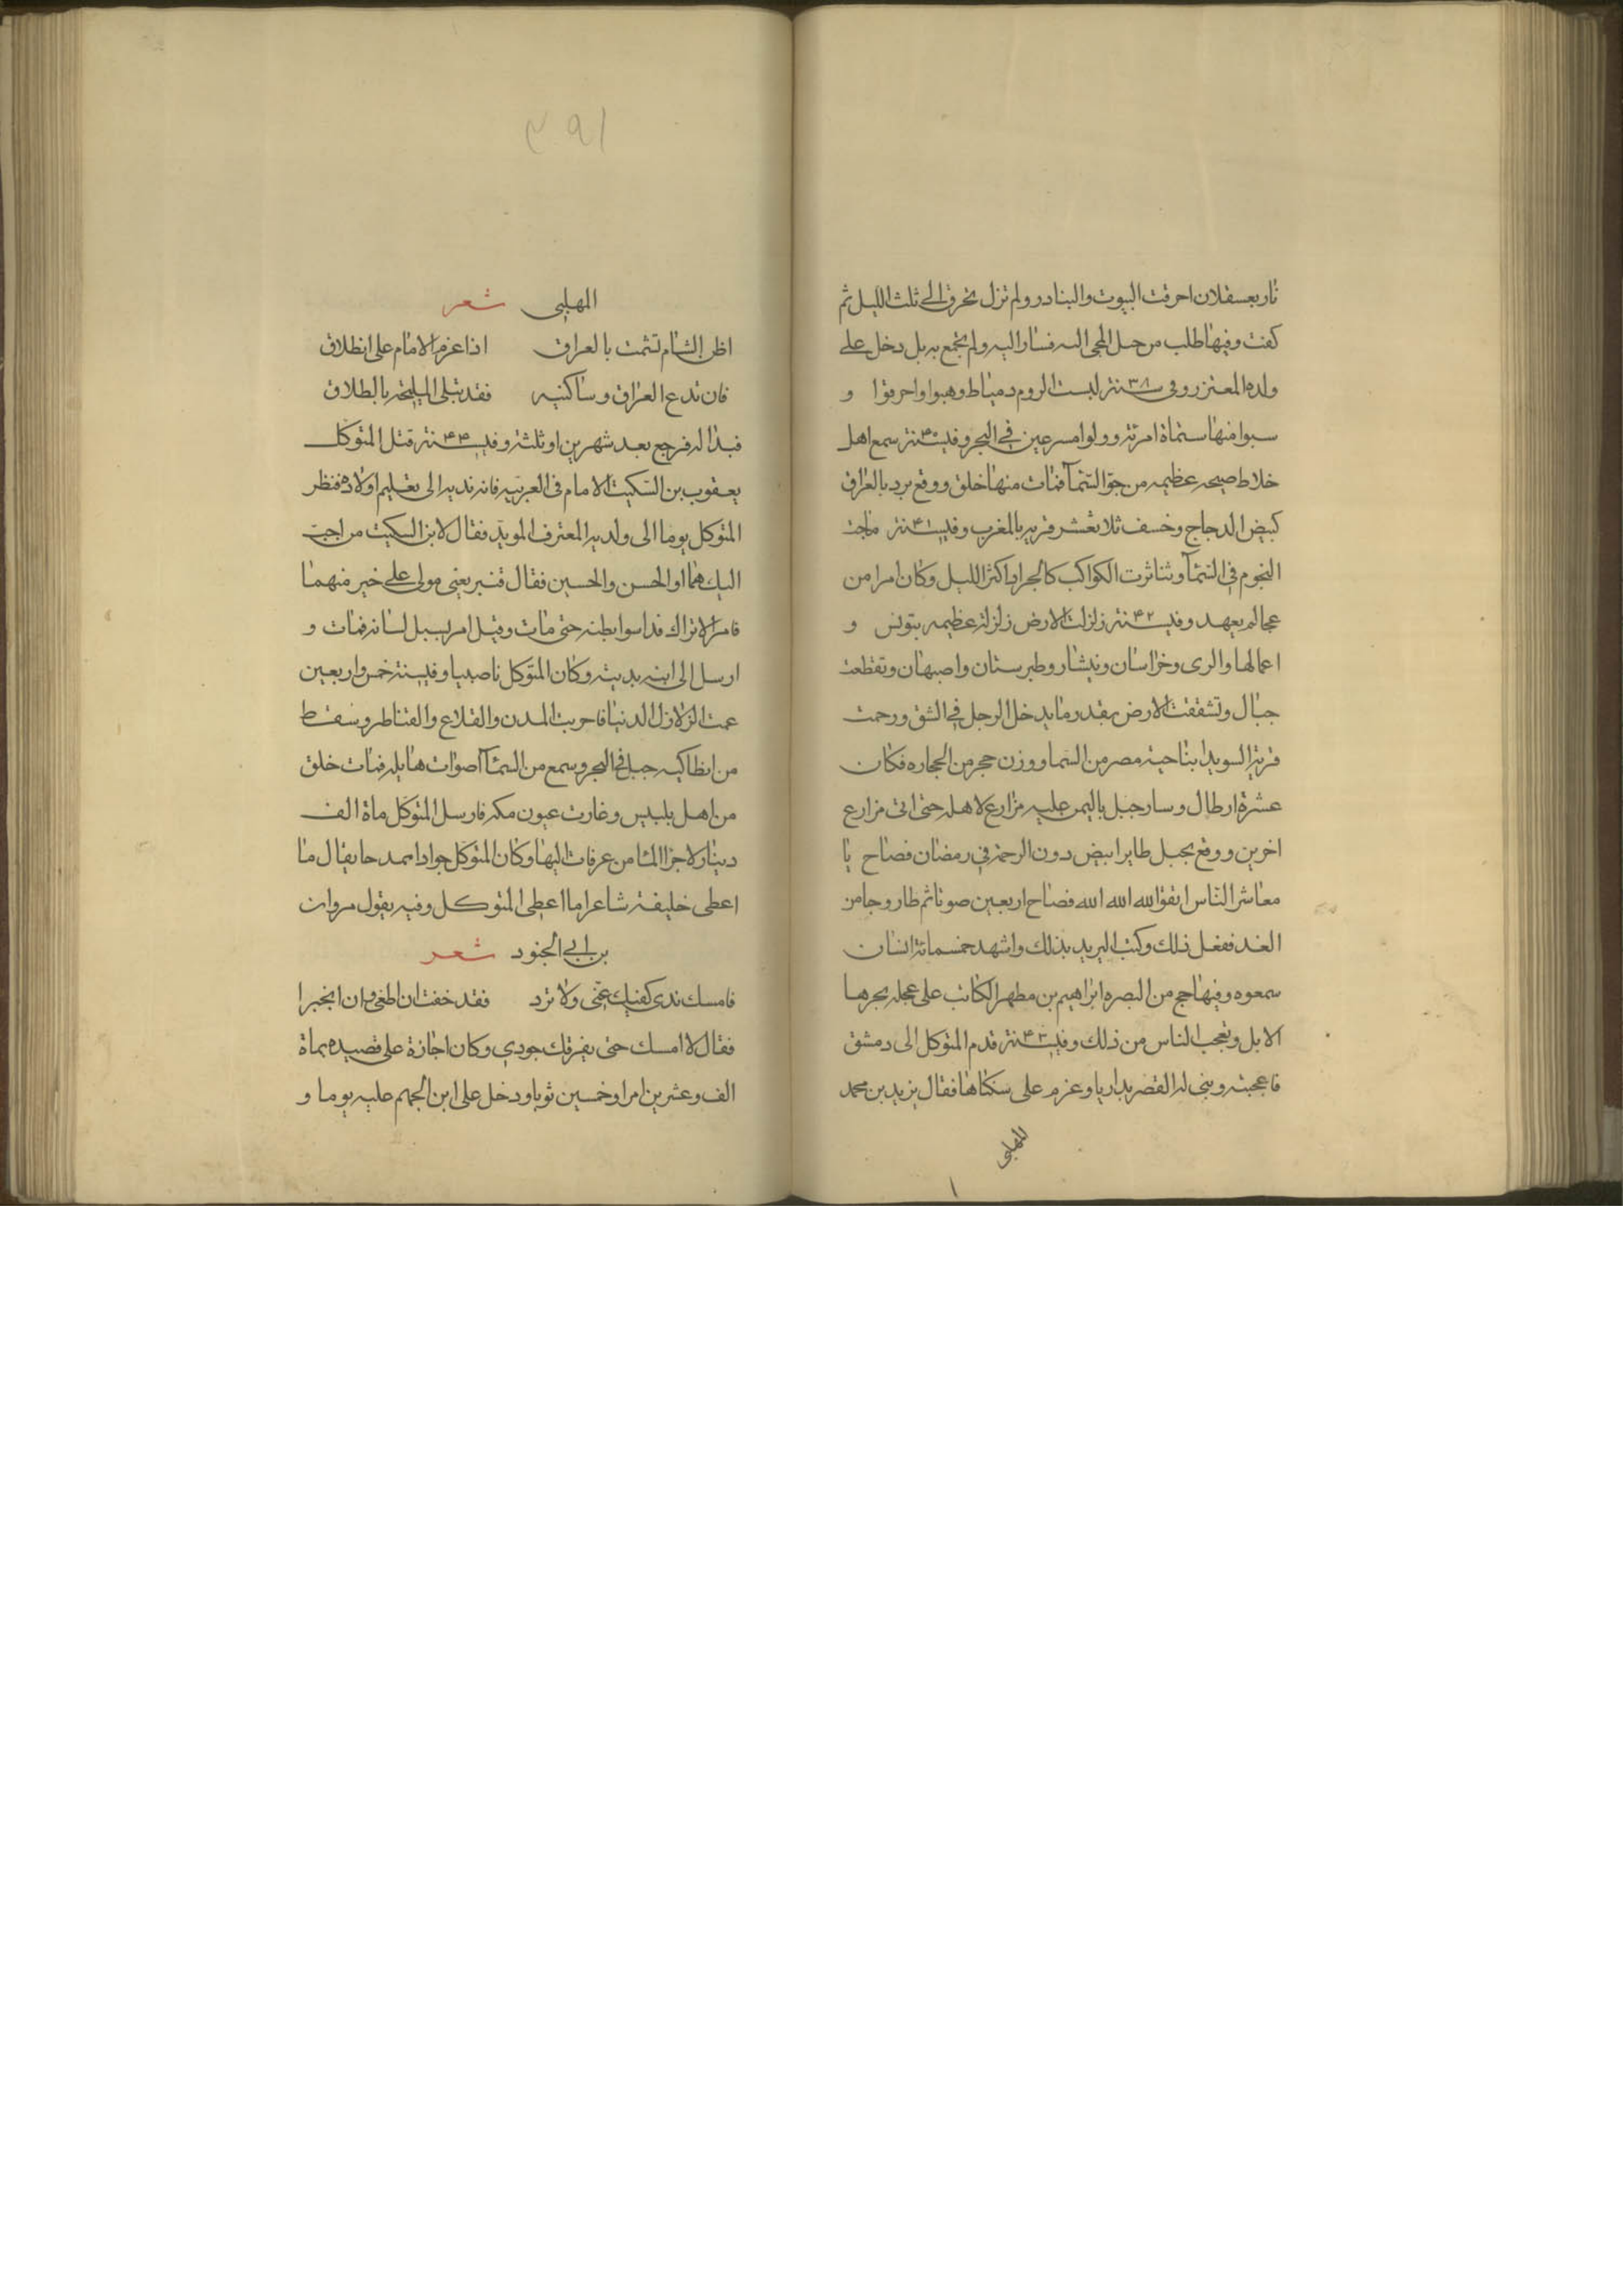 نار بعسقلان احرقت البيوت والبنادر ولم تزل تحرق الى ثلث الليل ثم
كفت وفيها طلب من المجى اليه فسار اليه ولم يجتمع به بل دخل على
ولده المعتز وفى سنة ٣٨ الروم دمياط ونهبوا واحرقوا و
سبوا منها ستماة امرئة وولوا مسرعين فى البحر وفى سنة ٤٠ سمع اهل
خلاط صيحه عظيمه من جو السّمآ فمات منها خلق ووقع برد بالعراق
كبيض الدجاج وخسف ثلاثة عشر قريه بالمغرب وفى سنة ٤١ ماجت
النجوم فى السّمآ وتناثرت الكواكب كالجراد اكثر الليل وكان امرا من
عجا لم يعهد وفى سنة ٤٢ زلزلت الارض زلزلة عظيمه بتونس و
اعمالها والرى وخراسان ونيشار وطبرستان واصبهان وتقطعت
جبال وتشققت الارض بقدر ما يدخل الرجل فى الشق ورجمت
قرية السويدا بناحية مصر من السّما ووزن حجر من الحجاره فكان
عشرة ارطال وسار جبل باليمن عليه مزارع لاهله حتى اتى مزارع
اخرين ووقع بجبل طاير ابيض دون الرخمة فى رمضان فصاح يا
معاشر الناس اتقوا الله الله الله فصاح اربعين صوتا ثم طار وجا من
الغد ففعل ذلك وكتب البريد بذلك واشهد خمسمائة انسان
سمعوه وفيها حج من البصره ابراهيم بن مطهر الكاتب على عجله تجرها
الابل وتعجب الناس من ذلك وفى سنة ٤٣ قدم المتوكل الى دمشق
فاعجبته وبنى له القصر بداريا وعزم على سكناها فقال يزيد بن محمد
المهلبى
١
٣٩١
المهلبى شعر
اظن الشام تشمت بالعراق اذا عزم الامام على انطلاق
فان تدع العراق وساكنيه فقد تبلى المليحة بالطلاق
فبدا له فرجع بعد شهرين او ثلثة وفى سنة ٤٤ قتل المتوكل
يعقوب بن السّكيت الامام فى العربيه فانه ندبه الى تعليم اولاده فنظر
المتوكل يوما الى ولديه المعتز والمويد فقال لابن السكيت من احب
اليك هما او الحسن والحسين فقال قنبر يعنى مولى على خير منهما
فامر الاتراك فداسوا بطنه حتى مات وقيل امر بسل لسانه فمات و
ارسل الى ابنه بديته وكان المتوكل ناصبيا وفى سنة خمس واربعين
عمت الزلازل الدنيا فاخربت المدن والقلاع والقناطر وسقط
من انطاكيه جبل فى البحر وسمع من السّمآ اصوات هائله فمات خلق
من اهل بلبيس وغارت عيون مكه فارسل المتوكل ماة الف
دينار لاجرا الما من عرفات اليها وكان المتوكل جوادا ممدحا يقال ما
اعطى خليفة شاعرا ما اعطى المتوكل وفيه يقول مروان
بن ابى الجنود شعر
فامسك ندى كفيك عنّى ولا تزد فقد خفت ان اطغى وان اتجبرا
فقال لا امسك حتى يغرقك جودى وكان اجازه على قصيده بماة
الف وعشرين امرا وخمسين ثوبا ودخل على ابن الجهم عليه يوما و